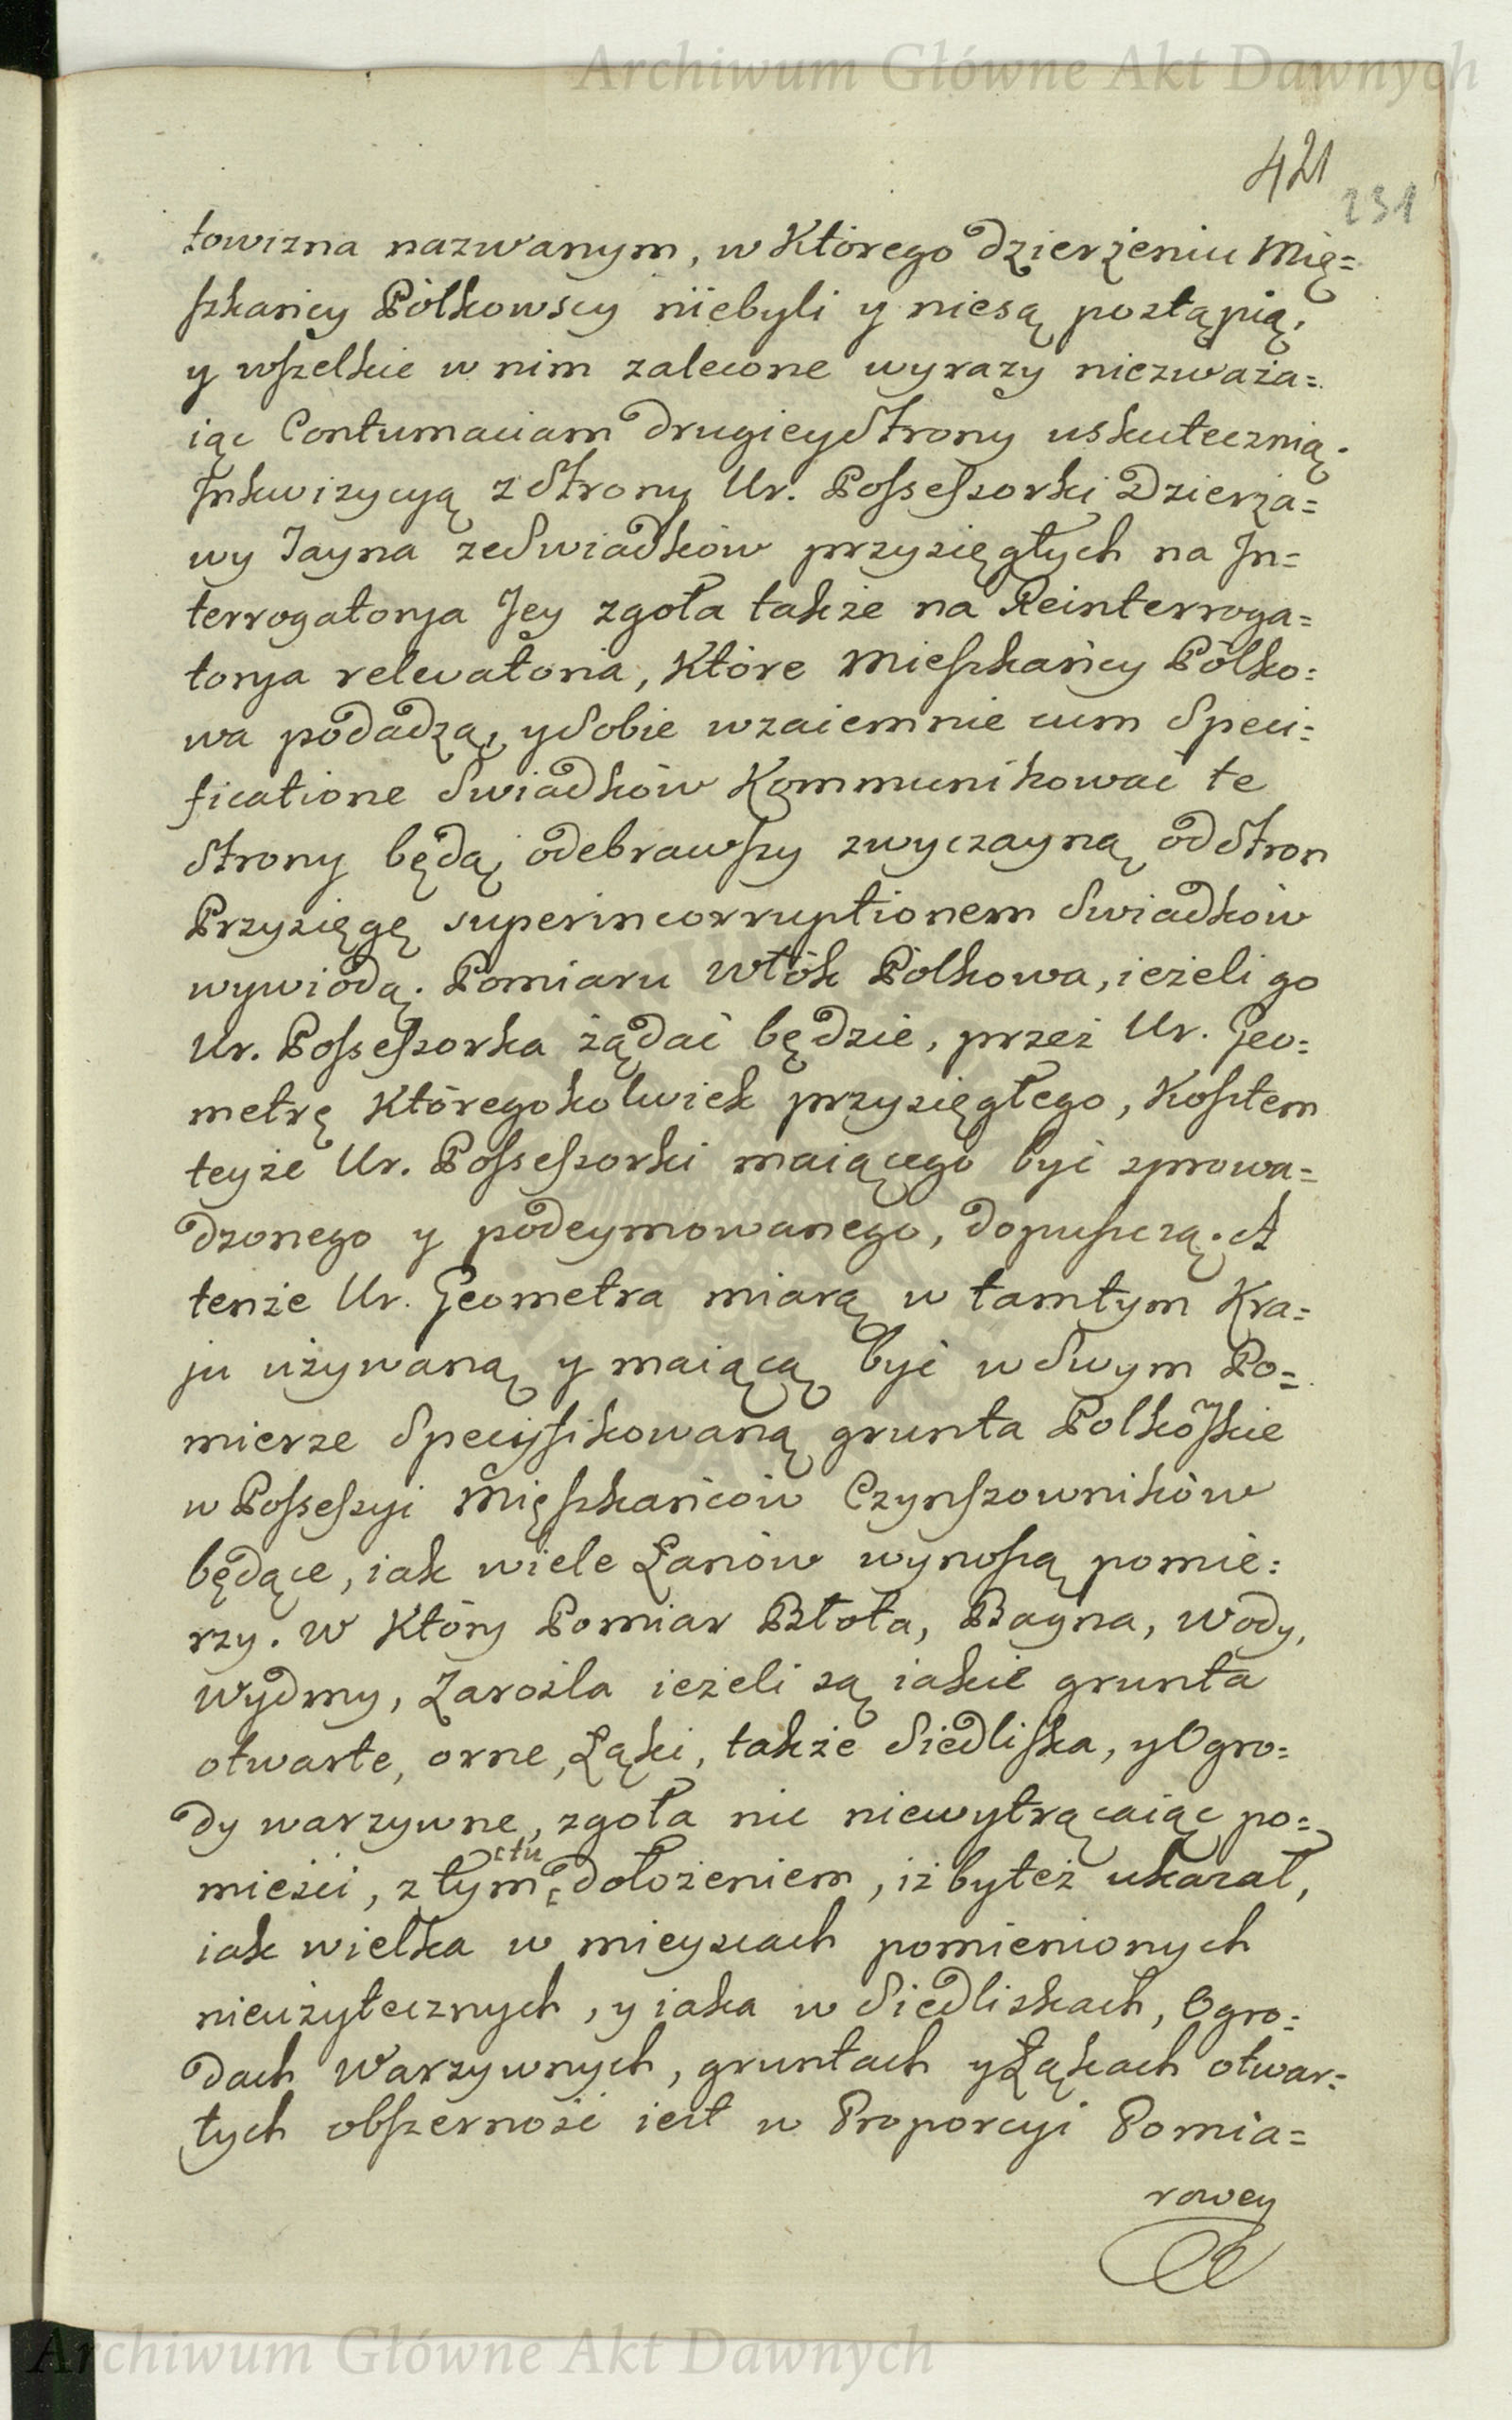 Archiwum Główne Akt Dawnych
421
231
towizna nazwanym, w Którego dzierżeniu Mię=
szkańcy Pólkowscy niebyli y niesą postąpią,
y wszelkie w nim zalecone wyrazy niezważa=
iąc Contumaciam drugiey Strony uskutecznią.
Inkwizycyą z Strony Ur. Possessorki Dzierża=
wy Jayna ze Swiadków przysięgłych na In=
terrogatorya Jey zgoła także na Reinterroga=
torya relevatoria, Które Mieszkańcy Pólko=
wa podadzą, y Sobie wzaiemnie cum Speci=
ficatione Swiadków Kommunikować te
Strony będą, odebrawszy zwyczayną od Stron
Przysięgę super incorruptionem Swiadków
wywiodą. Pomiaru Włók Pólkowa, ieżeli go
Ur. Possessorka żądać będzie, przez Ur. Geo=
metrę Któregokolwiek przysięgłego, Kosztem
teyże Ur. Possessorki maiącego być sprowa=
dzonego y podeymowanego, dopuszczą. A
tenże Ur. Geometra miarą w tamtym Kra=
ju używaną y maiącą być w Swym Po=
mierze Specyfikowaną grunta Polkoskie
w Possessyi Mięszkańców Czynszowników
będące, iak wiele Łanów wynoszą pomie=
rzy. W Który Pomiar Błota, Bagna, Wody,
Wydmy, Zarośla ieżeli są iakie grunta
otwarte, orne, Łąki, także Siedliska, y Ogro=
dy warzywne, zgoła nic niewytrącaiąc po=
mieści, z tym actu dołożeniem, iżby też ukazał,
iak wielka w mieyscach pomienionych
nieużytecznych, y iaka w Siedliskach, Ogro=
dach Warzywnych, gruntach y Łąkach otwar=
tych obszerność iest w Proporcyi Pomia=
rowey
Archiwum Główne Akt Dawnych